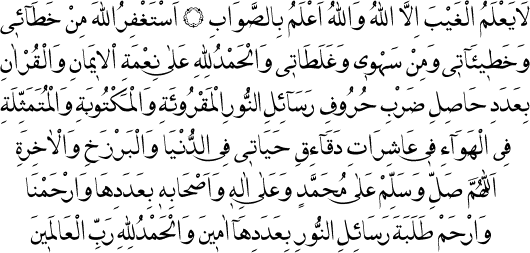 لَايَعْلَمُ الْغَيْبَ اِلَّا اللّٰهُ وَاللّٰهُ اَعْلَمُ بِالصَّوَابِ ۞ اَسْتَغْفِرُ اللّٰهَ مِنْ خَطَائِى
وَخَطِيئَاتِى وَمِنْ سَهْوِى وَغَلَطَاتِى وَالْحَمْدُ لِلّٰهِ عَلٰى نِعْمَةِ الْاِيمَانِ وَالْقُرْاٰنِ
بِعَدَدِ حَاصِلِ ضَرْبِ حُرُوفِ رَسَائِلِ النُّورِ الْمَقْرُوئَةِ وَالْمَكْتُوبَةِ وَالْمُتَمَثِّلَةِ
فِى الْهَوَاءِ فِى عَاشِرَاتِ دَقَاءِقِ حَيَاتِى فِى الدُّنْيَا وَالْبَرْزَخِ وَالْاٰخِرَةِ
اَللّٰهُمَّ صَلِّ وَسَلِّمْ عَلٰى مُحَمَّدٍ وَعَلٰى اٰلِهِ وَاَصْحَابِهِ بِعَدَدِهَا وَارْحَمْنَا
وَارْحَمْ طَلَبَةَ رَسَائِلِ النُّورِ بِعَدَدِهَا اٰمِينَ وَالْحَمْدُ لِلّٰهِ رَبِّ الْعَالَمِينَ